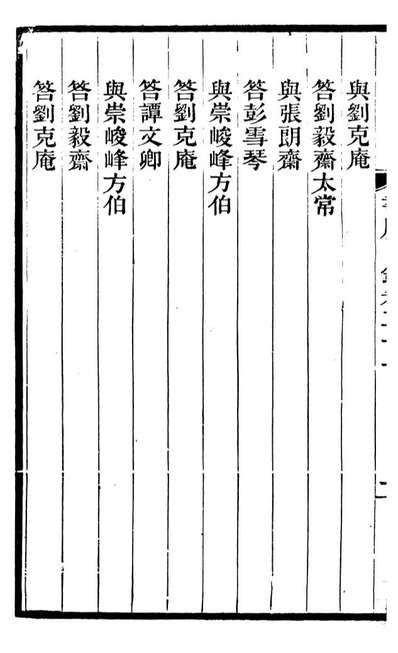 與劉克庵
答劉毅齋太常
與張朗齋
答彭雪琴
與崇峻峰方伯
答劉克庵
答譚文卿
與崇峻峰方伯
答劉毅齋
答劉克庵